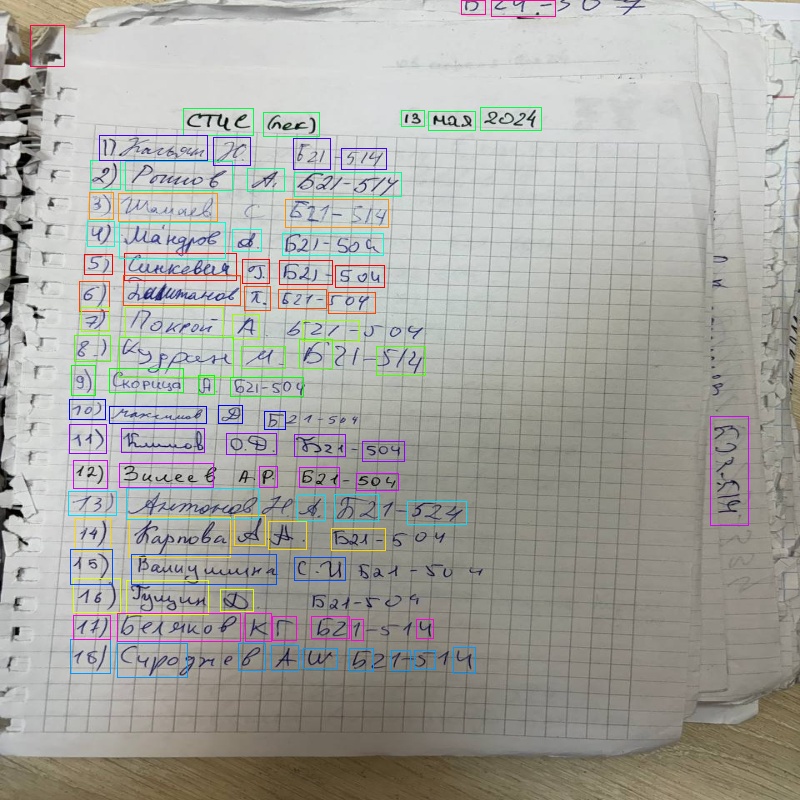 Б21-507
СТЦС (лек) 13 мая 2024
1) Касьян Ю. Б21-514
2) Рошков А. Б21-514
3) Шамаев С Б21-514
4) Мандров А. Б21-504
5) Синкевич Г. Б21-504
6) П. Б21-504
7) Покрой А. Б21-504
8.) Кудран М. Б21-514
9) Скорица А Б21-504
10) Максимов Д Б21-504
11) Климов О.Д. Б21-504
12) Зилеев А.Р. Б21-504
13) Антонов Н А. Б21-524
14) Карпова А А. Б21-504
15) С.И Б21-504
16) Гущин Д. Б21-504
17) Беляков К Г Б21-514
18) Сироджев А Ш Б21-514